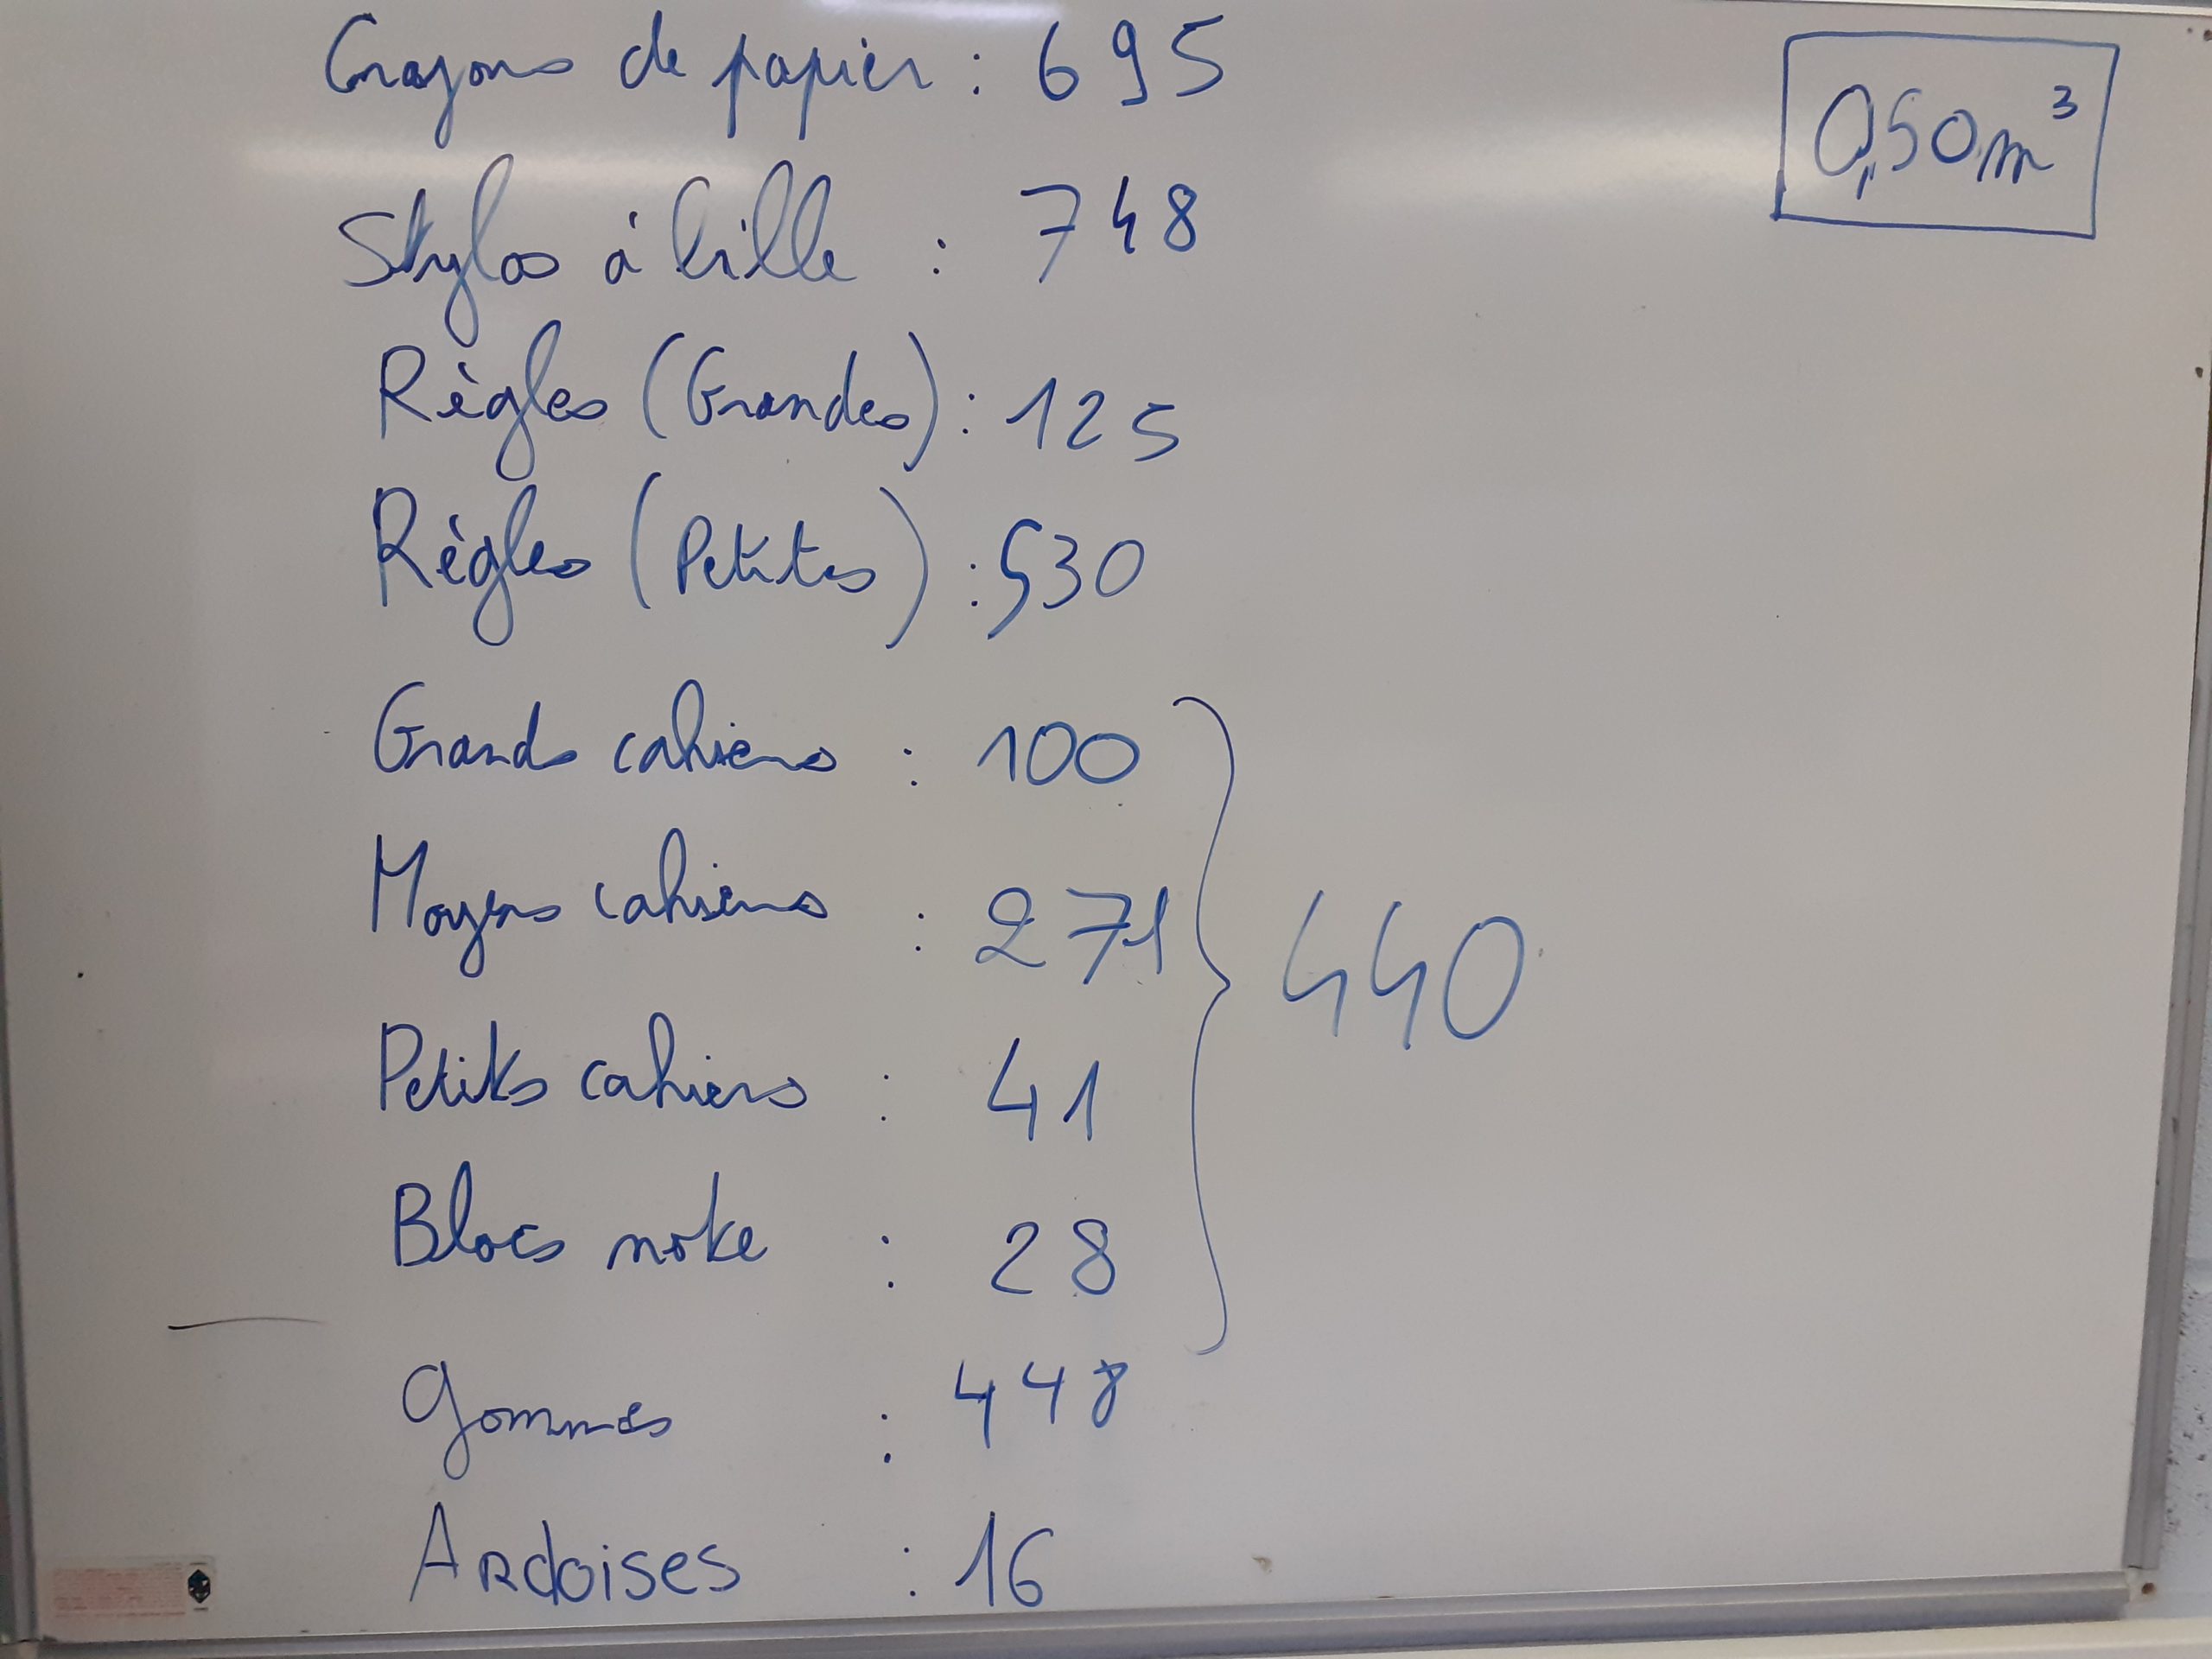 Crayons de papier : 695
0,50 m³
Stylos à bille : 748
Règles (Grandes) : 125
Règles (Petites) : 530
Grands cahiers : 100
Moyens cahiers : 271
440
Petits cahiers : 41
Blocs note : 28
Gommes : 448
Ardoises : 16